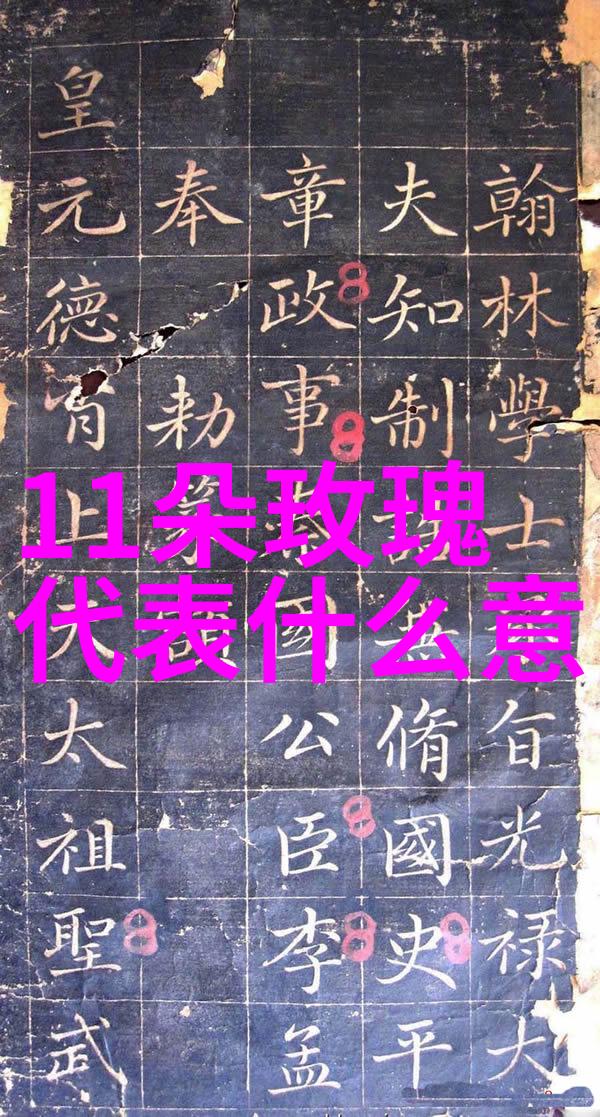 11朵玫瑰
代表什么意
翰林學士旨光祿大
夫知制脩國史平
章政事國公臣李孟
奉勑篆
皇元德太祖聖武